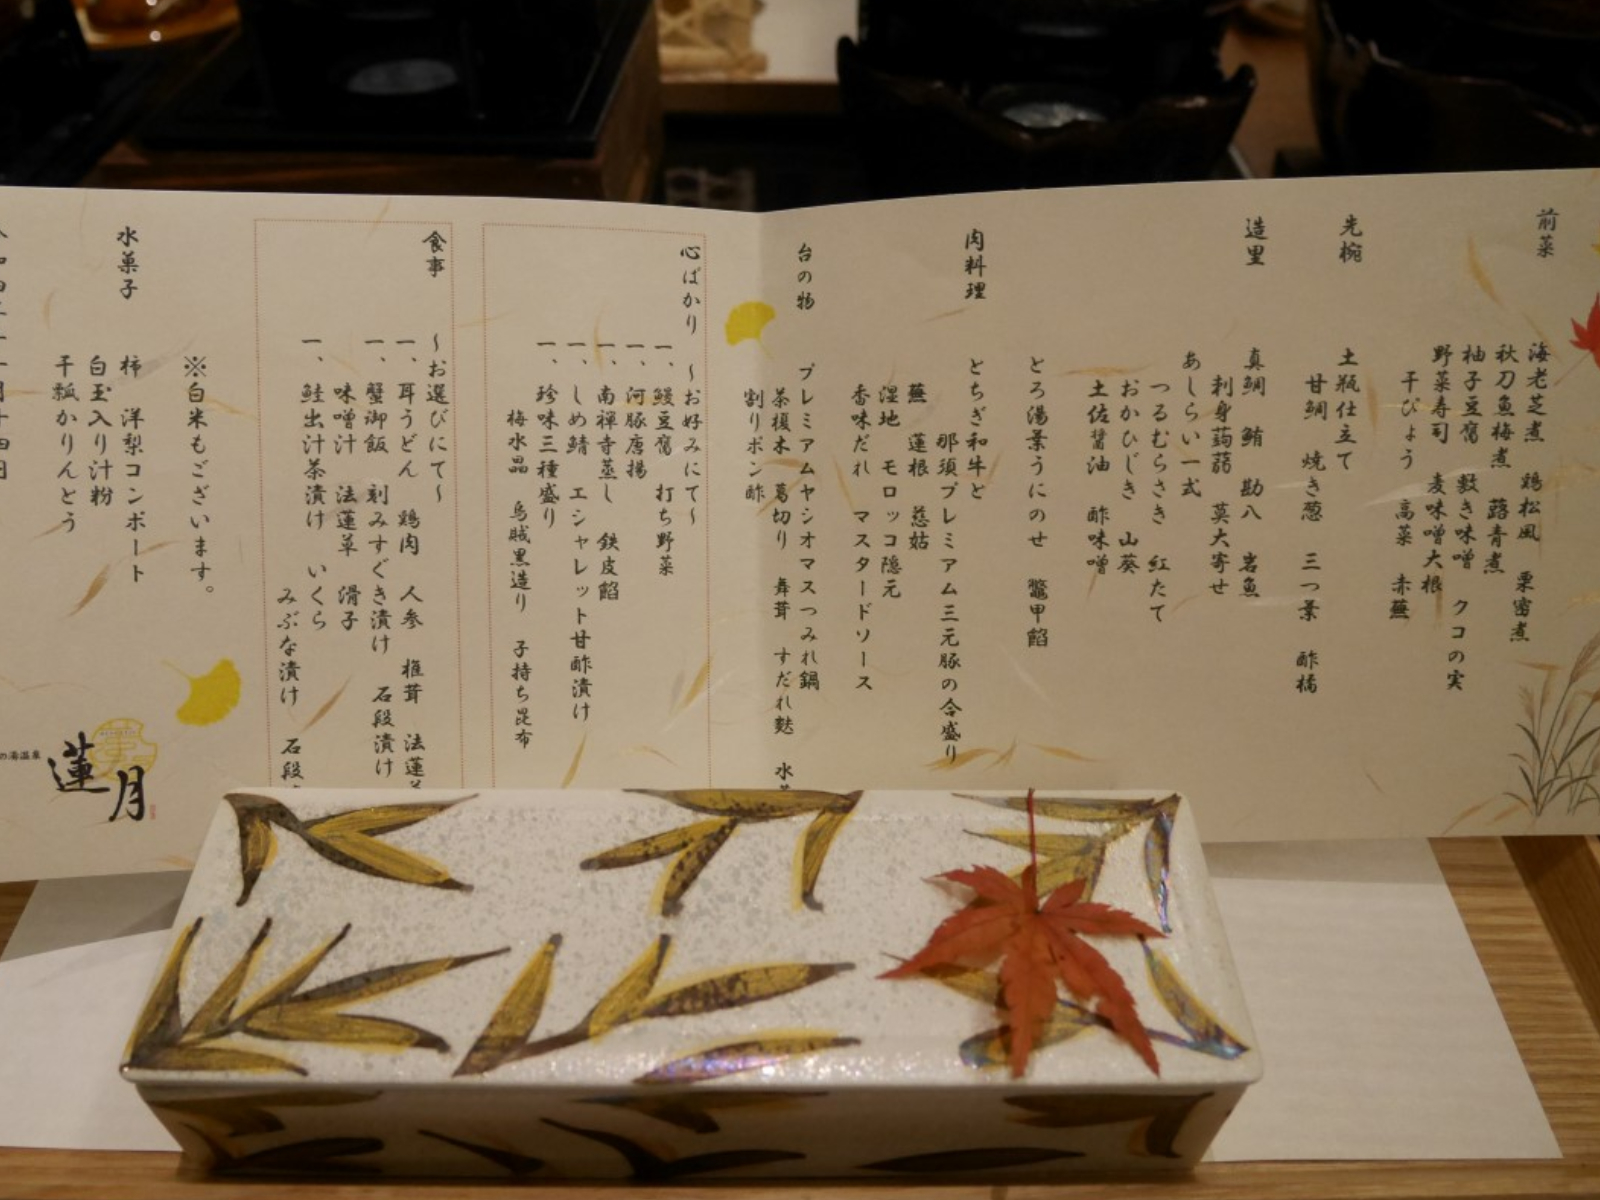 前菜
海老芝煮 鶏松風 栗蜜煮
秋刀魚梅煮 蕗青煮
柚子豆腐 敷き味噌 クコの実
野菜寿司 麦味噌大根
干ぴょう 高菜 赤蕪
先椀
土瓶仕立て
甘鯛 焼き葱 三つ葉 酢橘
造里
真鯛 鮪 勘八 岩魚
刺身蒟蒻 莫大寄せ
あしらい一式
つるむらさき 紅たて
おかひじき 山葵
土佐醤油 酢味噌
とろ湯葉うにのせ 鼈甲餡
肉料理
とちぎ和牛と
那須プレミアム三元豚の合盛り
蕪 蓮根 慈姑
湿地 モロッコ隠元
香味だれ マスタードソース
台の物
プレミアムヤシオマスつみれ鍋
茶榎木 葛切り 舞茸 すだれ麩 水
割りポン酢
心ばかり ～お好みにて～
一、鰻豆腐 打ち野菜
一、河豚唐揚
一、南禅寺蒸し 鉄皮餡
一、しめ鯖 エシャレット甘酢漬け
一、珍味三種盛り
梅水晶 烏賊黒造り 子持ち昆布
食事 ～お選びにて～
一、耳うどん 鶏肉 人参 椎茸 法蓮
一、蟹御飯 刻みすぐき漬け 石段漬け
味噌汁 法蓮草 滑子
一、鮭出汁茶漬け いくら
みぶな漬け 石段
※白米もございます。
水菓子
柿 洋梨コンポート
白玉入り汁粉
干瓢かりんとう
の湯温泉
蓮月